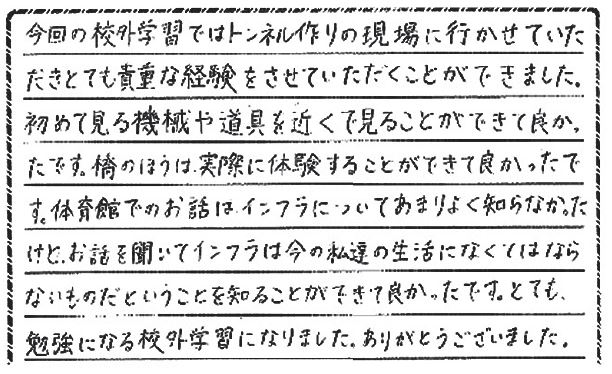 今回の校外学習ではトンネル作りの現場に行かせていた
だきとても貴重な経験をさせていただくことができました。
初めて見る機械や道具を近くで見ることができて良かっ
たです。橋のほうは、実際に体験することができて良かったで
す。体育館でのお話はインフラについてあまりよく知らなかった
けど、お話を聞いてインフラは今の私達の生活になくてはなら
ないものだということを知ることができて良かったです。とても、
勉強になる校外学習になりました。ありがとうございました。